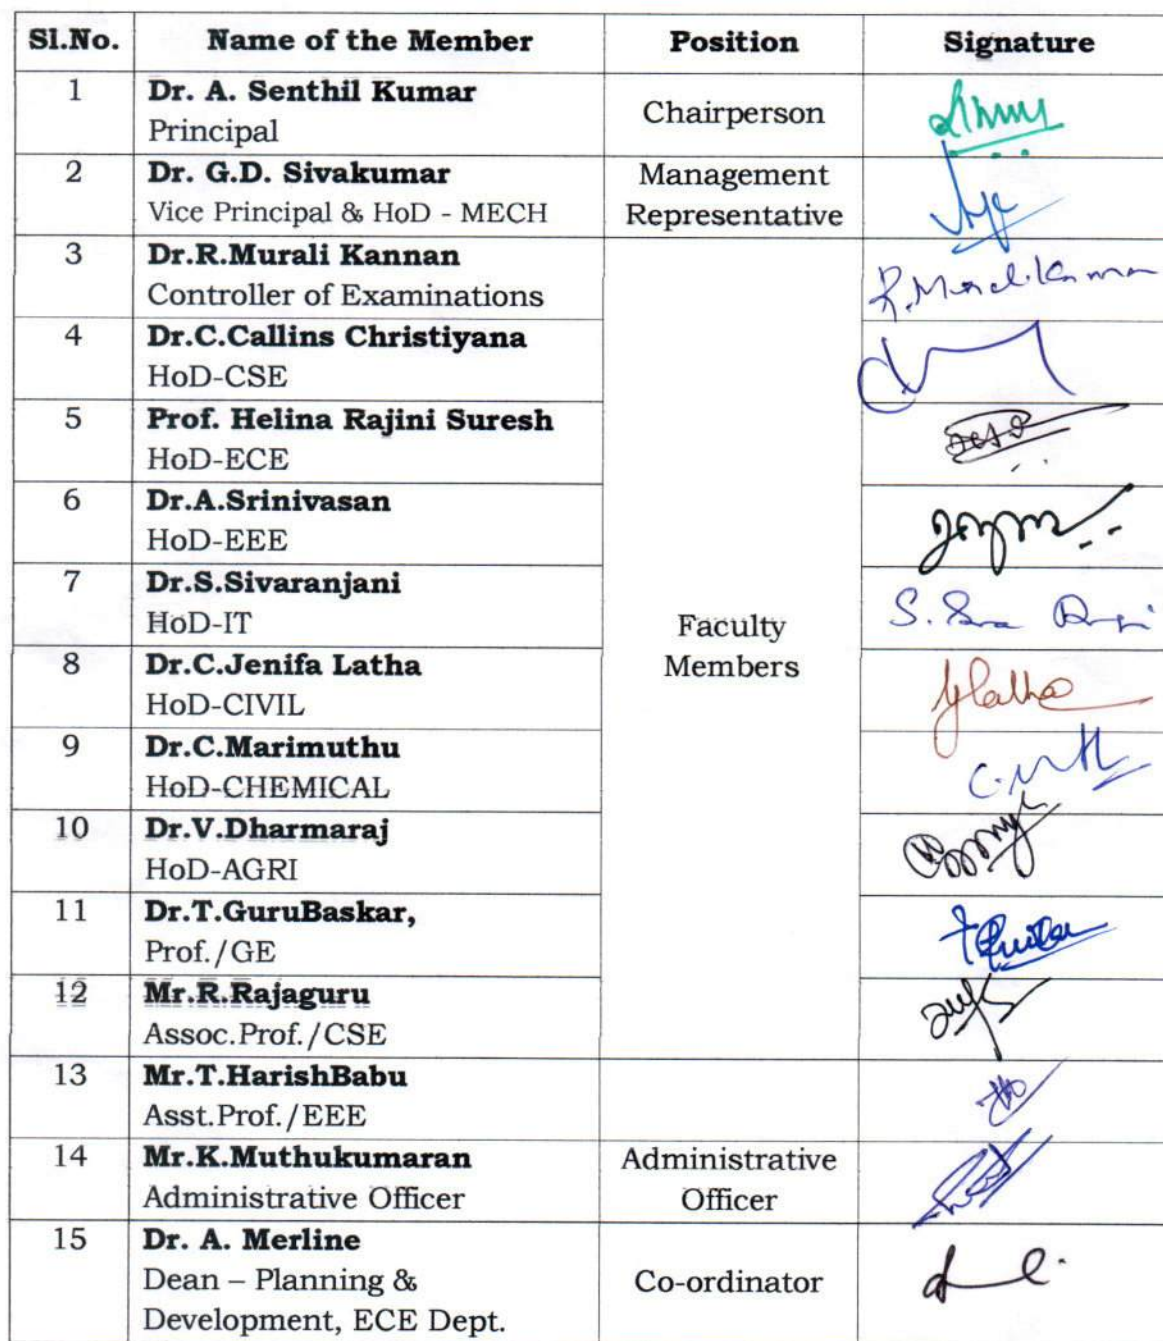 Sl.No. Name of the Member Position Signature
1 Dr. A. Senthil Kumar
Principal
Chairperson
2 Dr. G.D. Sivakumar
Vice Principal & HoD - MECH
Management
Representative
3 Dr.R.Murali Kannan
Controller of Examinations
R.Muralikannan
4 Dr.C.Callins Christiyana
HoD-CSE
5 Prof. Helina Rajini Suresh
HoD-ECE
6 Dr.A.Srinivasan
HoD-EEE
7 Dr.S.Sivaranjani
HoD-IT
Faculty
Members
8 Dr.C.Jenifa Latha
HoD-CIVIL
9 Dr.C.Marimuthu
HoD-CHEMICAL
10 Dr.V.Dharmaraj
HoD-AGRI
11 Dr.T.GuruBaskar,
Prof./GE
12 Mr.R.Rajaguru
Assoc.Prof./CSE
13 Mr.T.HarishBabu
Asst.Prof./EEE
14 Mr.K.Muthukumaran
Administrative Officer
Administrative
Officer
15 Dr. A. Merline
Dean – Planning &
Development, ECE Dept.
Co-ordinator